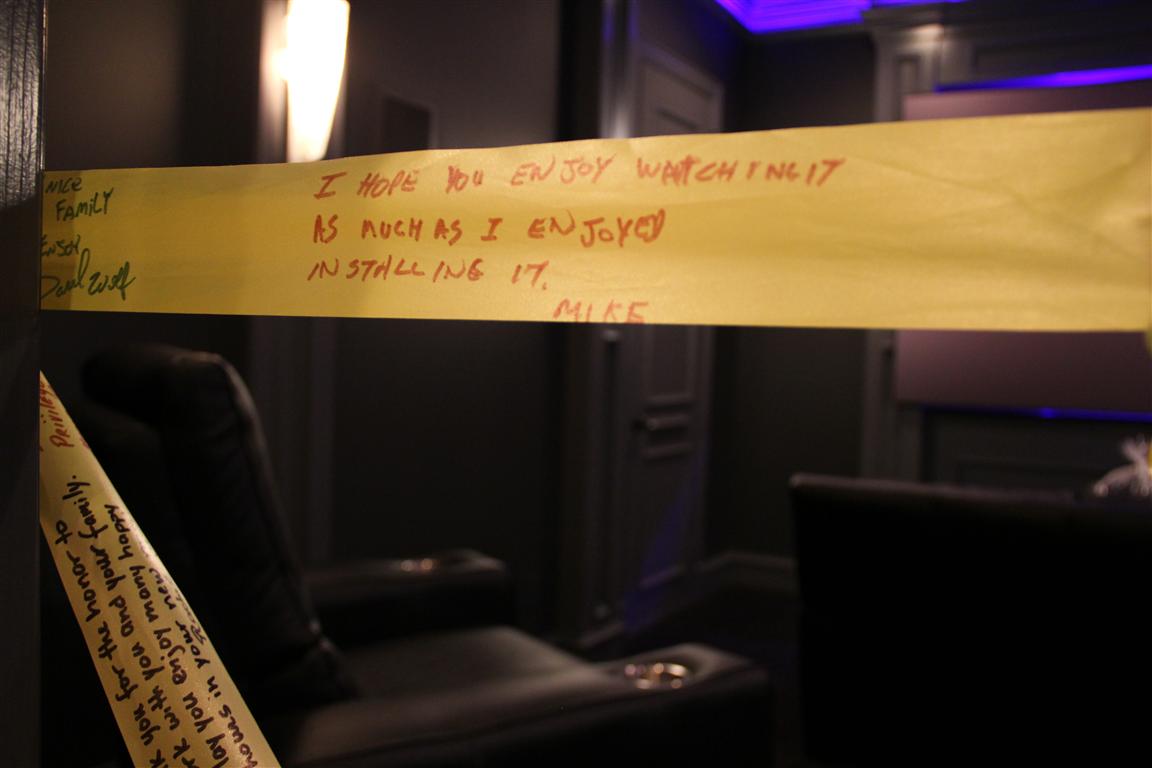 NICE
FAMILY
ENJOY
I HOPE YOU ENJOY WATCHING IT
AS MUCH AS I ENJOYED
INSTALLING IT.
MIKE
you for the honor to
with you and your family.
you enjoy many happy
hours in your new